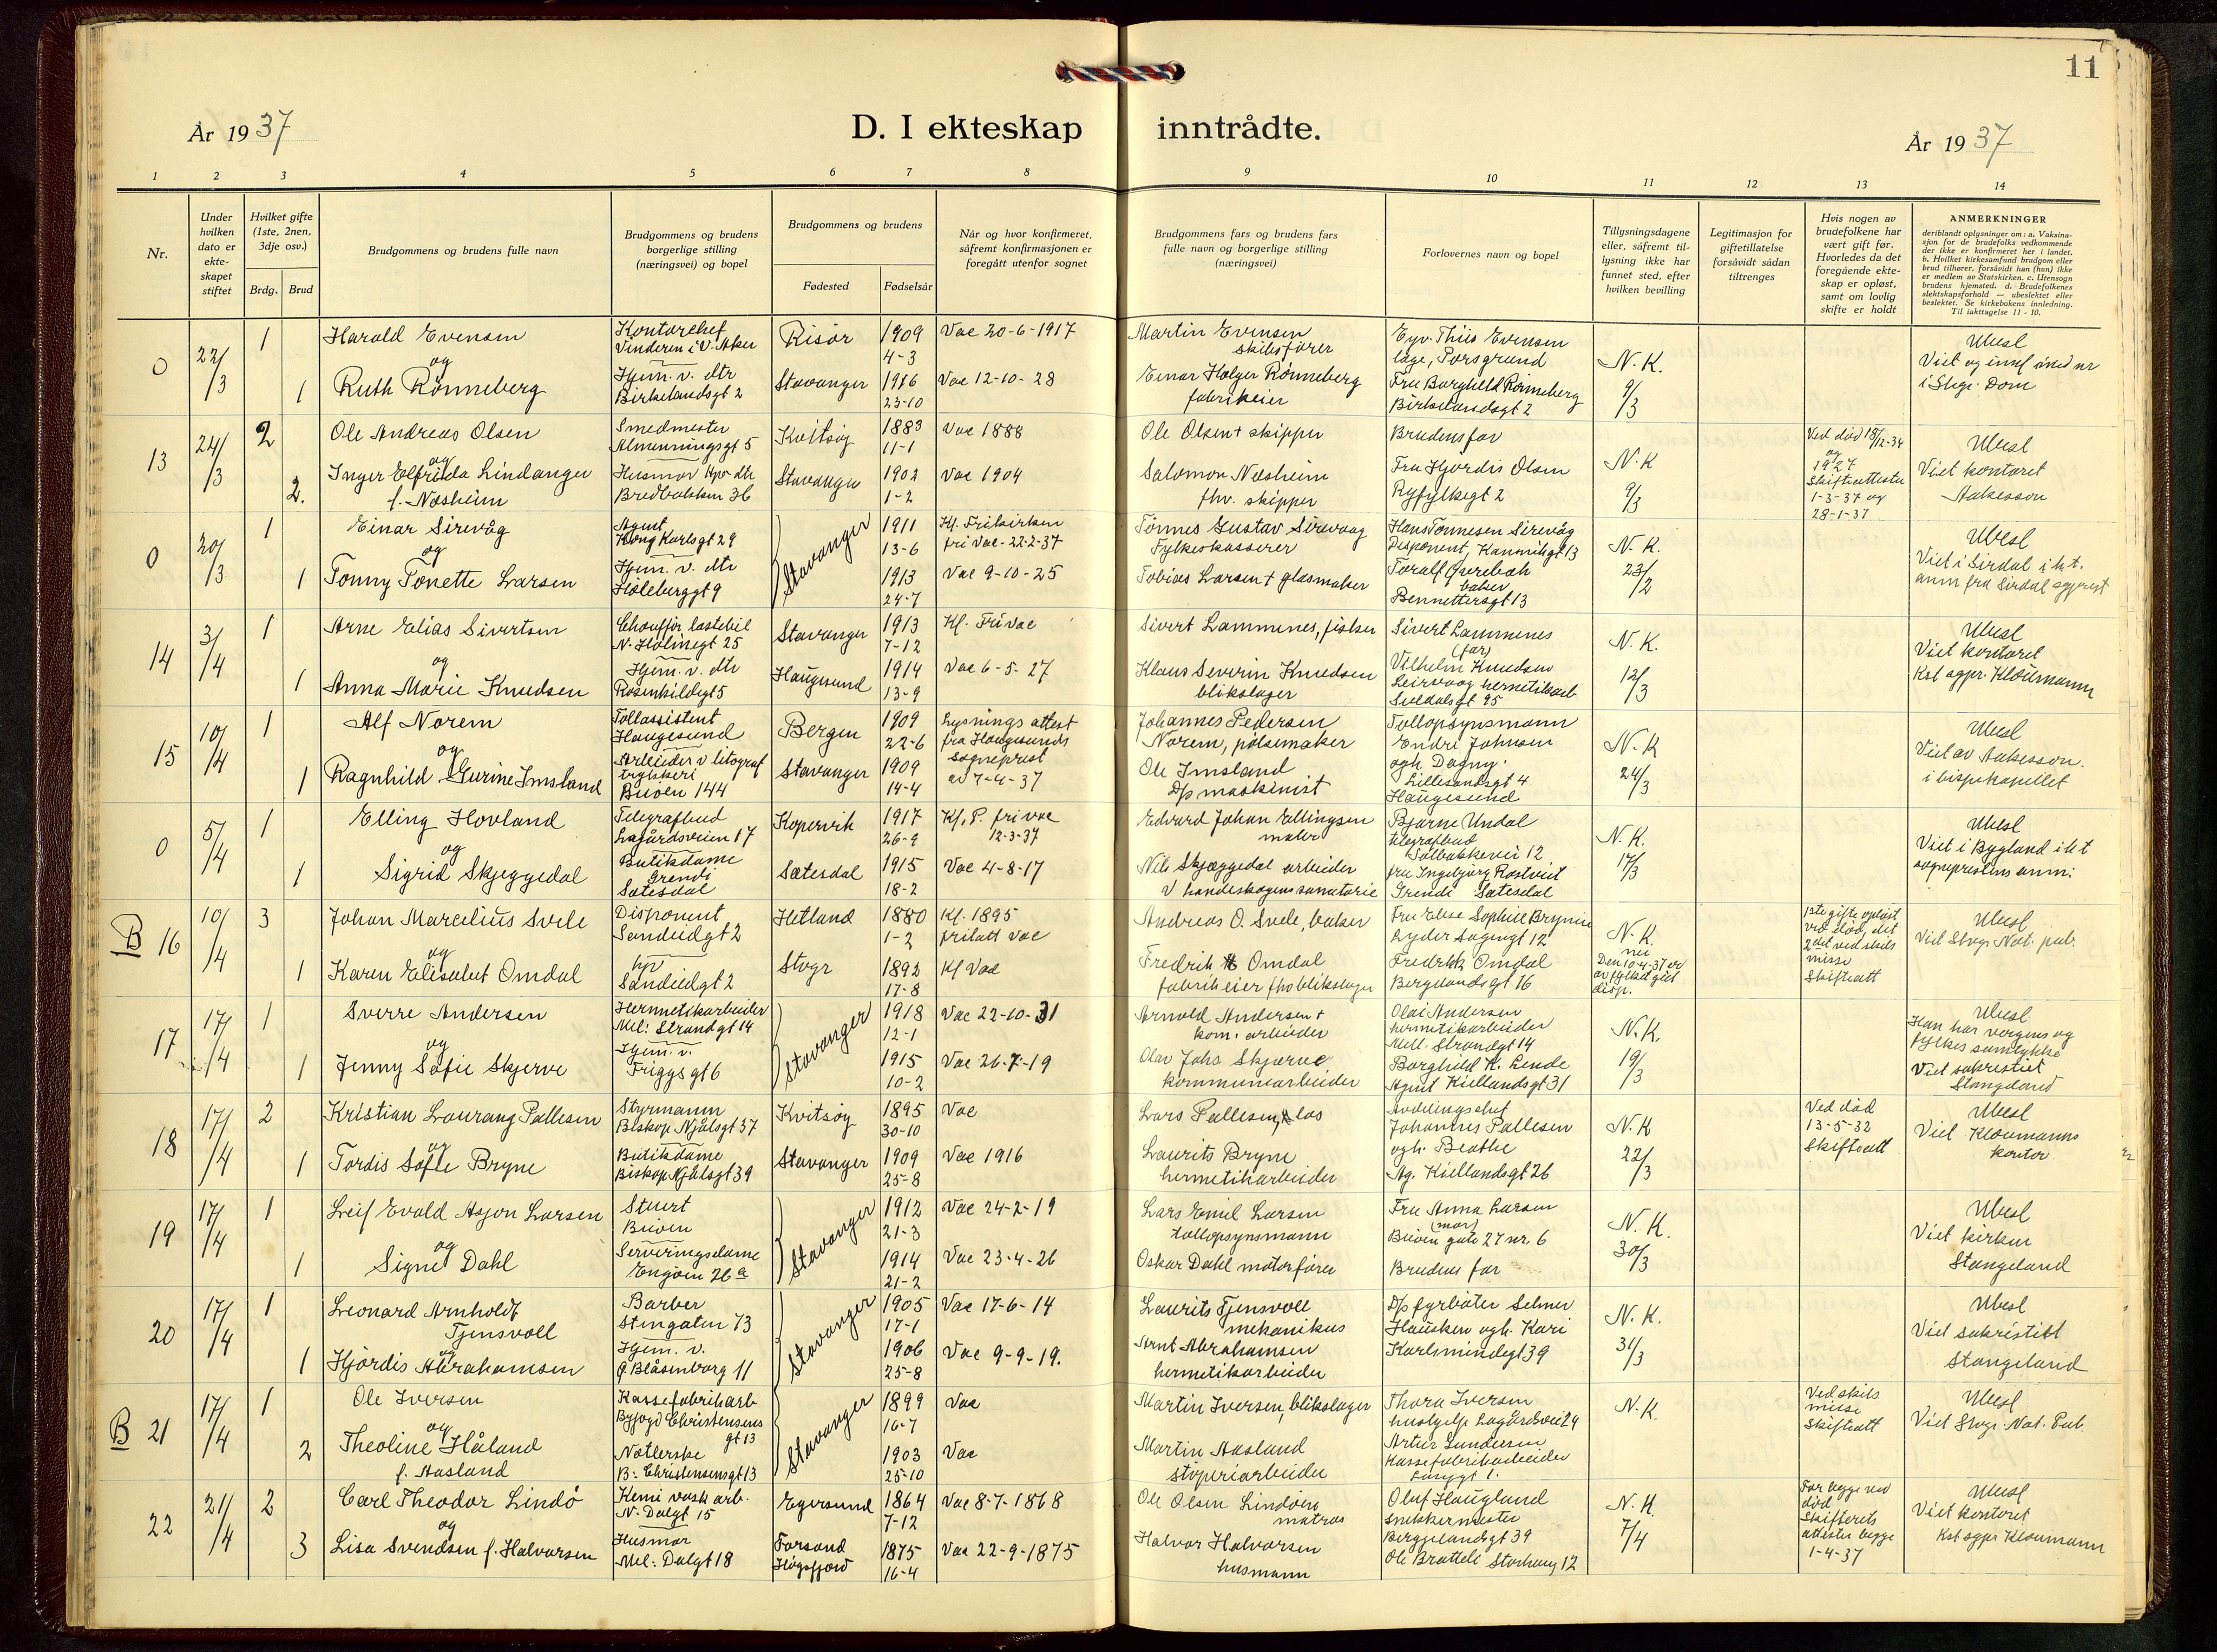 11
År 1937
D. I ekteskap inntrådte.
År 1937
1 2 3 4 5 6 7 8 9 10 11 12 13 14
Nr.
Under hvilken dato er ekteskapet stiftet
Hvilket gifte (1ste, 2nen, 3dje osv.)
Brdg. Brud
Brudgommens og brudens fulle navn
Brudgommens og brudens borgerlige stilling (næringsvei) og bopel
Brudgommens og brudens
Fødested Fødselsår
Når og hvor konfirmeret, såfremt konfirmasjonen er foregått utenfor sognet
Brudgommens fars og brudens fars fulle navn og borgerlige stilling (næringsvei)
Forlovernes navn og bopel
Tillysningsdagene eller, såfremt tillysning ikke har funnet sted, efter hvilken bevilling
Legitimasjon for giftetillatelse forsåvidt sådan tiltrenges
Hvis nogen av brudefolkene har vært gift før. Hvorledes da det foregående ekteskap er opløst, samt om lovlig skifte er holdt
ANMERKNINGER
deriblandt oplysninger om: a. Vaksinasjon for de brudefolks vedkommende der ikke er konfirmeret her i landet. b. Hvilket kirkesamfund brudgom eller brud tilhører, forsåvidt han (hun) ikke er medlem av Statskirken. c. Utensogn brudens hjemsted. d. Brudefolkenes slektskapsforhold — ubeslektet eller beslektet. Se kirkebokens innledning. Til iakttagelse 11 - 10.
0 22/3 1 Harald Evensen Kontorchef Vinderen i V. Aker Risør 1909 4-3 Vac 20-6-1917 Martin Evensen skibsfører Eyv. Thiis Evensen læge, Porsgrund N. K. 9/3 Ubesl
og
1 Ruth Rönneberg Hjem. v. dtr Birkelandsgt 2 Stavanger 1916 23-10 Vac 12-10-28 Einar Holger Rönneberg fabrikeier Fru Borghild Rönneberg Birkelandsgt 2 i Stvgr. Dom
13 24/3 2 Ole Andreas Olsen Smedmester Almenningsgt 5 Kvitsøy 1883 11-1 Vac 1888 Ole Olsen + skipper Brudens far N. K 9/3 Ved død 18/12-34 og 1927 Skifteattester 1-3-37 og 28-1-37 Ubesl Viet kontoret Aakesson
og
2. Inger Elfrida Lindanger f. Næsheim Husmor Bredbakken 36 Stavanger 1902 1-2 Vac 1904 Salomon Næsheim fhv. skipper Fru Hjørdis Olsen Ryfylkegt 2
0 20/3 1 Einar Sirevåg Agent Kong Karlsgt 29 Stavanger 1911 13-6 Kf. Frikirken fri Vac-22-2-37 Tönnes Gustav Sirevaag Fylkeskasserer Hans Tönnesen Sirevåg Disponent, Kannikgt 13 N. K. 23/2 Ubesl Viet i Sirdal i h.t. anm fra Sirdal sogneprest
og
1 Tonny Tonette Larsen Hjem. v. dtr Höleberggt 9 1913 24-7 Vac 9-10-25 Tobias Larsen + glasmaker Toralf Qverebæk baker Bennettersgt 13
14 3/4 1 Arne Elias Sivertsen Chauffør lastebil N. Holmegt 25 Stavanger 1913 7-12 Kf. Fri vac Sivert Lammenes, fisker Sivert Lammenes (far) N. K. 12/3 Ubesl Viet kontoret Kst sgpr. Kloumann
og
1 Anna Marie Knudsen Hjem. v. dtr Rosenkildegt 5 Haugesund 1914 13-9 Vac 6-5-27 Klaus Severin Knudsen blikslager Vilhelm Knudsen Leirvaag hermetikarb Suldalsgt 95
15 10/4 1 Alf Norem Tollassistent Haugesund Bergen 1909 22-6 Lysningsattest fra Haugesunds sogneprest av 7-4-37 Johannes Pedersen Norem, pølsemaker Tollopsynsmann Endre Johnsen ogh. Dagny Lillesundsgt 4 Haugesund N. K 24/3 Ubesl Viet av Aakesson i bispekapellet
og
1 Ragnhild Gurine Imsland Arbeider v litograf trykkeri Buøen 144 Stavanger 1909 14-4 Ole Imsland D/p maskinist
0 5/4 1 Elling Hovland Telegrafbud Lagårdsveien 17 Kopervik 1917 26-9 Kf. P. fri vac 12-3-37 Edvard Johan Ellingsen maler Bjarne Undal telegrafbud Solbakkevei 12 N. K. 17/3 Ubesl Viet i Bygland i h.t sogneprestens anm.
og
1 Sigrid Skjeggedal Butikdame Grendi Sætesdal Sætesdal 1915 18-2 Vac 4-8-17 Nils Skjæggedal arbeider fru Ingebjørg Rostveit Grendi Sætesdal
B 16 10/4 3 Johan Marcelius Svele Disponent Sandeidgt 2 Hetland 1880 1-2 Kf. 1895 fritatt vac Andreas O. Svele, baker Fru Elise Sophie Brynie Lyder Sagengt 12 N. K. nei Den 10-4-37 er av fylket gitt disp. 1ste gifte opløst ved død, det 2det ved skilsmisse Skifteatt Ubesl Viet Stvgr Not. pub.
og
1 Karen Elisabet Omdal Sandeidgt 2 Stvgr 1892 17-8 Kf Vac Fredrik Omdal fabrikeier fhv blikslager Fredrik Omdal Bergelandsgt 16
17 17/4 1 Sverre Andersen Hermetikarbeider Mel: Strandgt 14 Stavanger 1918 12-1 Vac 22-10-31 Arnold Andersen + kom. arbeider Olai Andersen hermetikarbeider Mell. Strandgt 14 N. K. 19/3 Ubesl Han har vergens og fylkes samtykke Viet sakristiet Stangeland
og
1 Jenny Sofie Skjerve Hjem. v. Friggs gt 6 1915 10-2 Vac 26-7-19 Olav Johs Skjærve kommunearbeider Borghild K. Lende Agent Kiellandsgt 31
18 17/4 2 Kristian Laurang Pallesen Styrmann Biskop Njålsgt 37 Kvitsøy 1895 30-10 Vac Lars Pallesen, los Avdelingschef Johannes Pallesen N. K 22/3 Ved død 13-5-32 Skifteatt Ubesl Viet Kloumanns kontor
og
1 Tordis Sofie Bryne Butikdame Biskop Njålsgt 39 Stavanger 1909 25-8 Vac 1916 Laurits Bryne hermetikarbeider ogh. Beathe Ag. Kiellandsgt 26
19 17/4 1 Leif Evald Asjon Larsen Stuert Buøen Stavanger 1912 21-3 Vac 24-2-19 Lars Emil Larsen tollopsynsmann Fru Anna Larsen (mor) Buøen gate 27 nr. 6 N. K. 30/3 Ubesl Viet kirken Stangeland
og
1 Signe Dahl Serveringsdame Engøen 26a 1914 21-2 Vac 23-4-26 Oskar Dahl motorfører Brudens far
20 17/4 1 Leonard Arnholdt Tjensvoll Barber Stengaten 73 Stavanger 1905 17-1 Vac 17-6-14 Laurits Tjensvoll mekanikus D/p fyrbøter Selmer Hausken ogh. Kari Karlsmindegt 39 N. K. 31/3 Ubesl Viet sakristiet Stangeland
og
1 Hjördis Abrahamsen Hjem. v. G. Blåsenborg 11 1906 25-8 Vac 9-9-19. Arnt Abrahamsen hermetikarbeider
B 21 17/4 1 Ole Iversen Kassefabrikarb Byfogd Christensens gt 13 Stavanger 1899 16-7 Vac Martin Iversen, blikslager Thora Iversen hushjelp Lagårdsvei 24 N. K. Ved skilsmisse Skifteatt Ubesl Viet Stvgr. Not. Pub.
og
2 Theoline Håland f. Aasland Natlerske B: Christensensgt 13 1903 25-10 Vac Martin Aasland støperiarbeider Artur Gundersen Kassefabrikarbeider
22 21/4 2 Carl Theodor Lindö Kemi vask arb. N. Dalgt 15 Egersund 1864 7-12 Vac 8-7-1868 Ole Olsen Lindöen matros Oluf Haugland snekkermester Bergelandsgt 39 N. K. 7/4 For begge ved død Skifterets attester begge 1-4-37 Ubesl Viet kontoret Kst sgpr Kloumann
og
3 Lisa Svendsen f. Halvorsen Husmor Mel: Dalgt 18 Forsand Høgsfjord 1875 16-4 Vac 22-9-1875 Halvor Halvorsen husmann Ole Bratteli Storhaug 12